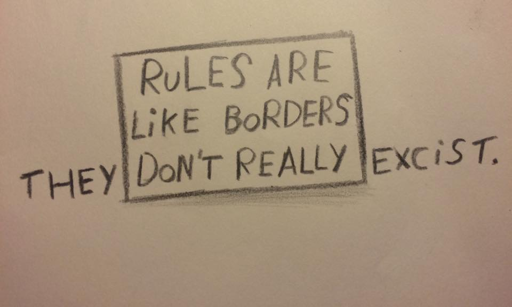 RULES ARE
LiKE BORDERS
THEY DON'T REALLY EXCiST.